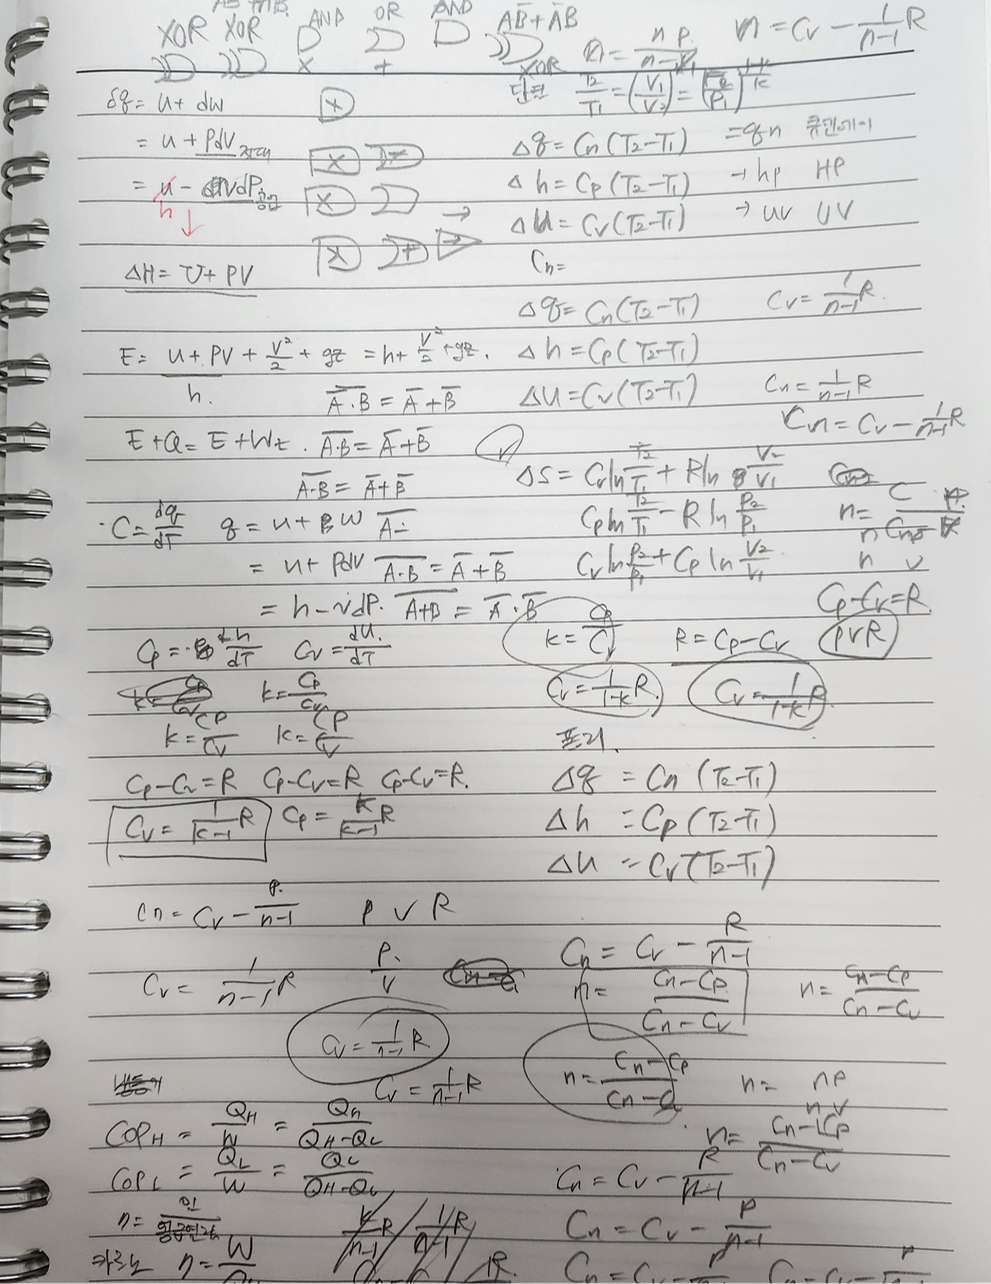 XOR XOR AND OR AND AB̅ + A̅B
XOR
n = Cv - 1/(n-1) R
δq = u + dw
단열 T2/T1 = (V1/V2)
= u + PdV 절대
Δq = Cn(T2-T1) = qn 큐엔에이
= u - vdP 공업
h
Δh = Cp(T2-T1) → hp HP
Δu = Cv(T2-T1) → uv UV
Cn=
ΔH = U + PV
Δq = Cn(T2-T1) Cv = 1/(n-1) R
E = u + PV + V²/2 + gz = h + V²/2 + gz. Δh = Cp(T2-T1)
h. \overline{A·B} = A̅ + B̅ Δu = Cv(T2-T1) Cn = 1/(n-1) R
Cn = Cv - 1/(n-1) R
E + Q = E + Wt. \overline{A·B} = A̅ + B̅
\overline{A·B} = A̅ + B̅ ΔS = Cv ln T2/T1 + R ln V2/V1
C = dq/dT q = u + W Cp ln T2/T1 - R ln P2/P1
= u + Pdv \overline{A·B} = A̅ + B̅ Cv ln P2/P1 + Cp ln V2/V1 n v
= h - vdP. \overline{A+B} = A̅·B̅ Cp-Cv=R.
Cp = dh/dT Cv = du/dT k = Cp/Cv R = Cp-Cv PVR
k = Cp/Cv Cv = 1/(1-k) R. Cv = 1/(1-k) R
k = CP/CV k = CP/CV 폴리.
Cp-Cv=R Cp-Cv=R Cp-Cv=R. Δq = Cn (T2-T1)
Cv = 1/(k-1) R Cp = k/(k-1) R Δh = Cp (T2-T1)
Δu = Cv(T2-T1)
Cn = Cv - P/(n-1) P V R
Cn = Cv - R/(n-1)
Cv = 1/(n-1) R P/V n = (Cn-Cp)/(Cn-Cv) n = (Cn-Cp)/(Cn-Cv)
Cv = 1/(n-1) R
Cv = 1/(n-1) R n = (Cn-Cp)/(Cn-Cv) n = np/nv
COPH = QH/W = QH/(QH-QL) n = (Cn-Cp)/(Cn-Cv)
COPL = QL/W = QL/(QH-QL) Cn = Cv - R/(n-1)
η = 일/공급열량 Cn = Cv - P/(n-1)
카르노 η = W